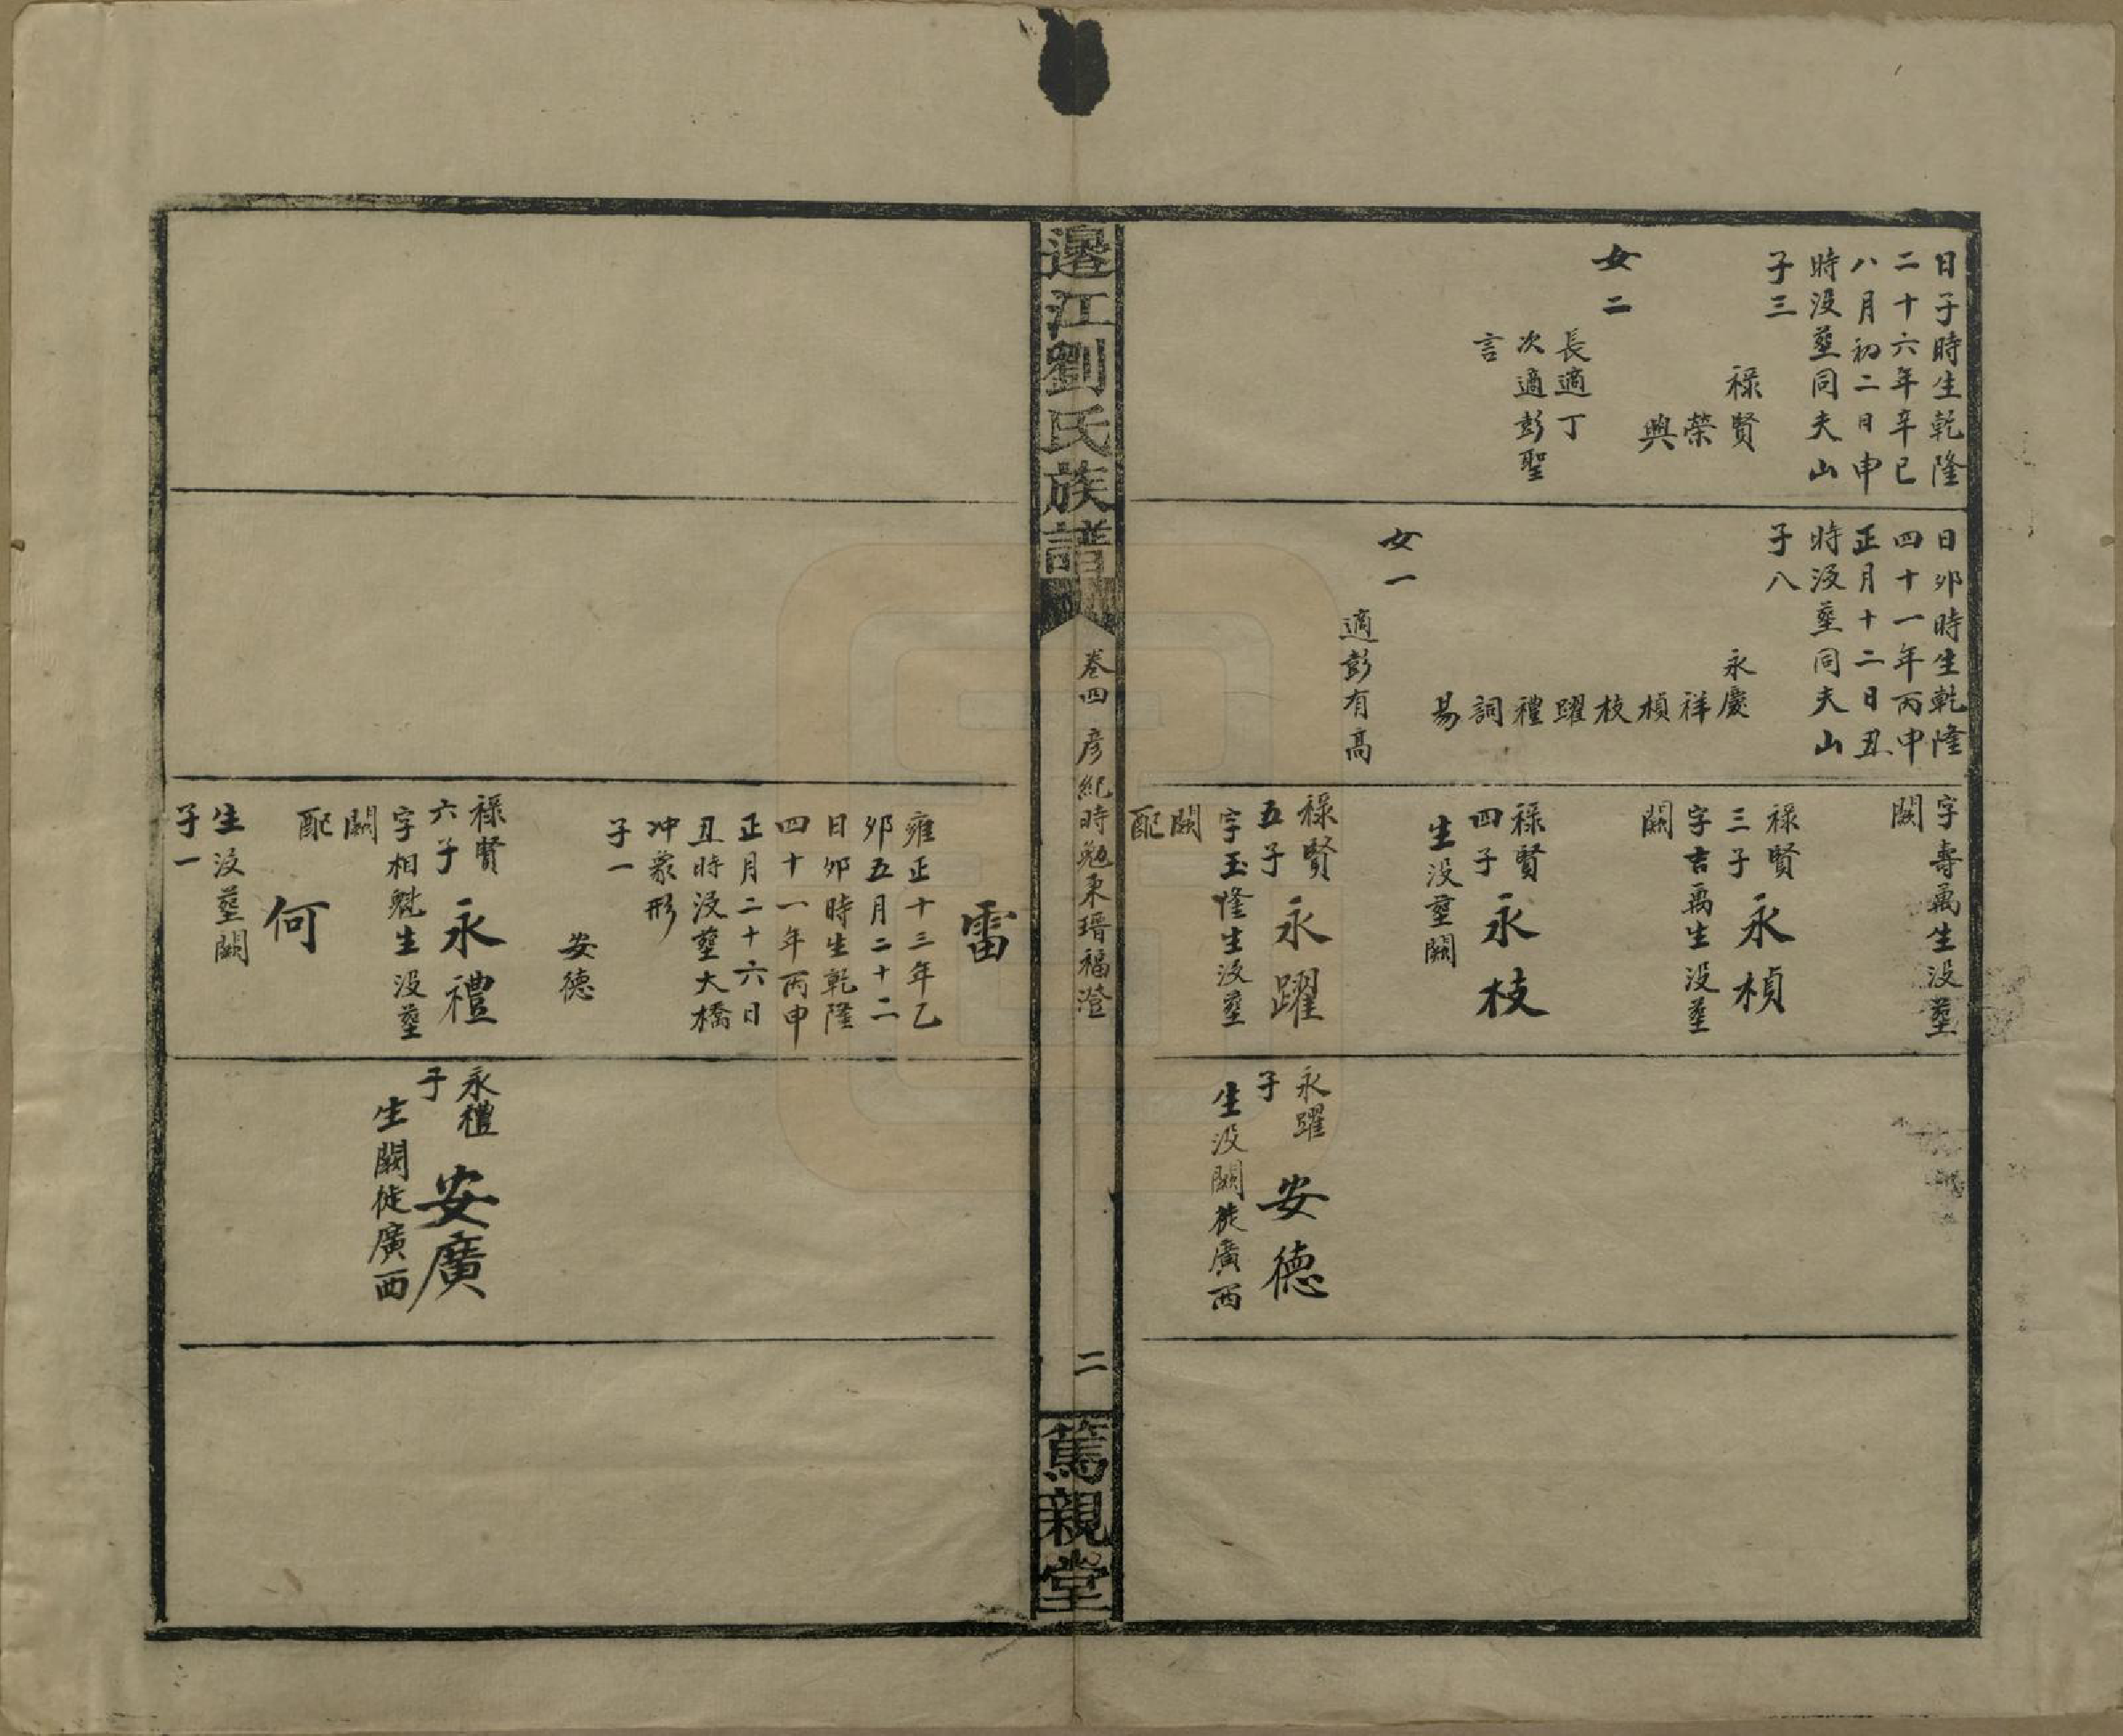 日子時生乾隆
二十六年辛巳
八月初二日申
時没塟同夫山
子三
祿賢
榮
興
女二
長適丁
次適彭聖
言
日夘時生乾隆
四十一年丙申
正月十二日丑
時没塟同夫山
子八
永慶
祥
楨
枝
躍
禮
詞
易
女一
適彭有高
字壽萬生没塟
闕
祿賢
三子
永楨
字吉禹生没塟
闕
祿賢
四子
永枝
生没塟闕
祿賢
五子
永躍
字玉隆生没塟
闕
配
永躍
子
安德
生没闕徙廣西
邊江劉氏族譜
卷四
彦紀時勉東瑨福澄
二
篤親堂
雷
雍正十三年乙
夘五月二十二
日夘時生乾隆
四十一年丙申
正月二十六日
丑時没塟大橋
冲蒙形
子一
安德
祿賢
六子
永禮
字相魁生没塟
闕
配
何
生没塟闕
子一
永禮
子
安廣
生闕徙廣西